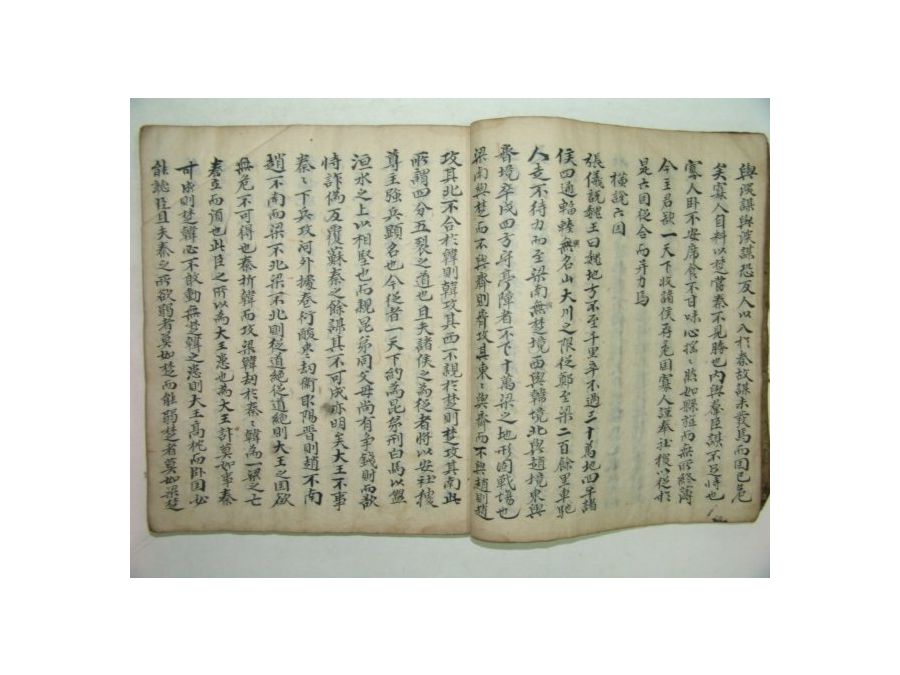 與深謀與深謀恐反人以入於秦故謀未發馬而國已危
矣寡人自料以楚當秦不見勝也內與羣臣謀不足恃也
寡人卧不安席食不甘味心搖〻然如縣旌而無所終薄
今主君欲一天下收諸侯存危國寡人謹奉社稷以從於
是六国從合而并力馬
橫說六国
張儀說魏王曰魏地方不至千里卒不過三十萬地四平諸
侯四通輻輳無名山大川之限從鄭至梁二百餘里車馳
人走不待力而至梁南與楚境西與韓境北與趙境東與
齊境卒戍四方守亭障者不下十萬梁之地形固戰場也
梁南與楚而不與齊則齊攻其東〻與齊而不與趙則趙
攻其北不合於韓則韓攻其西不親於楚則楚攻其南此
所謂四分五裂之道也且夫諸侯之為從者將以安社稷
尊主強兵顯名也今從者一天下約為昆弟刑白馬以盟
洹水之上以相堅也而親昆弟同父母尚有爭錢財而欲
恃詐偽反覆蘇秦之餘謀其不可成亦明矣大王不事
秦〻下兵攻河外據卷衍酸枣劫衛取陽晋則趙不南
趙不南而梁不北梁不北則從道絕從道絕則大王之国欲
無危不可得也秦折韓而攻梁韓劫於秦〻韓為一梁之亡
可立而須也此臣之所以為大王患也為大王計莫如事秦
事秦則楚韓必不敢動無楚韓之患則大王高枕而卧国必
無憂矣且夫秦之所欲弱者莫如楚而能弱楚者莫如梁楚